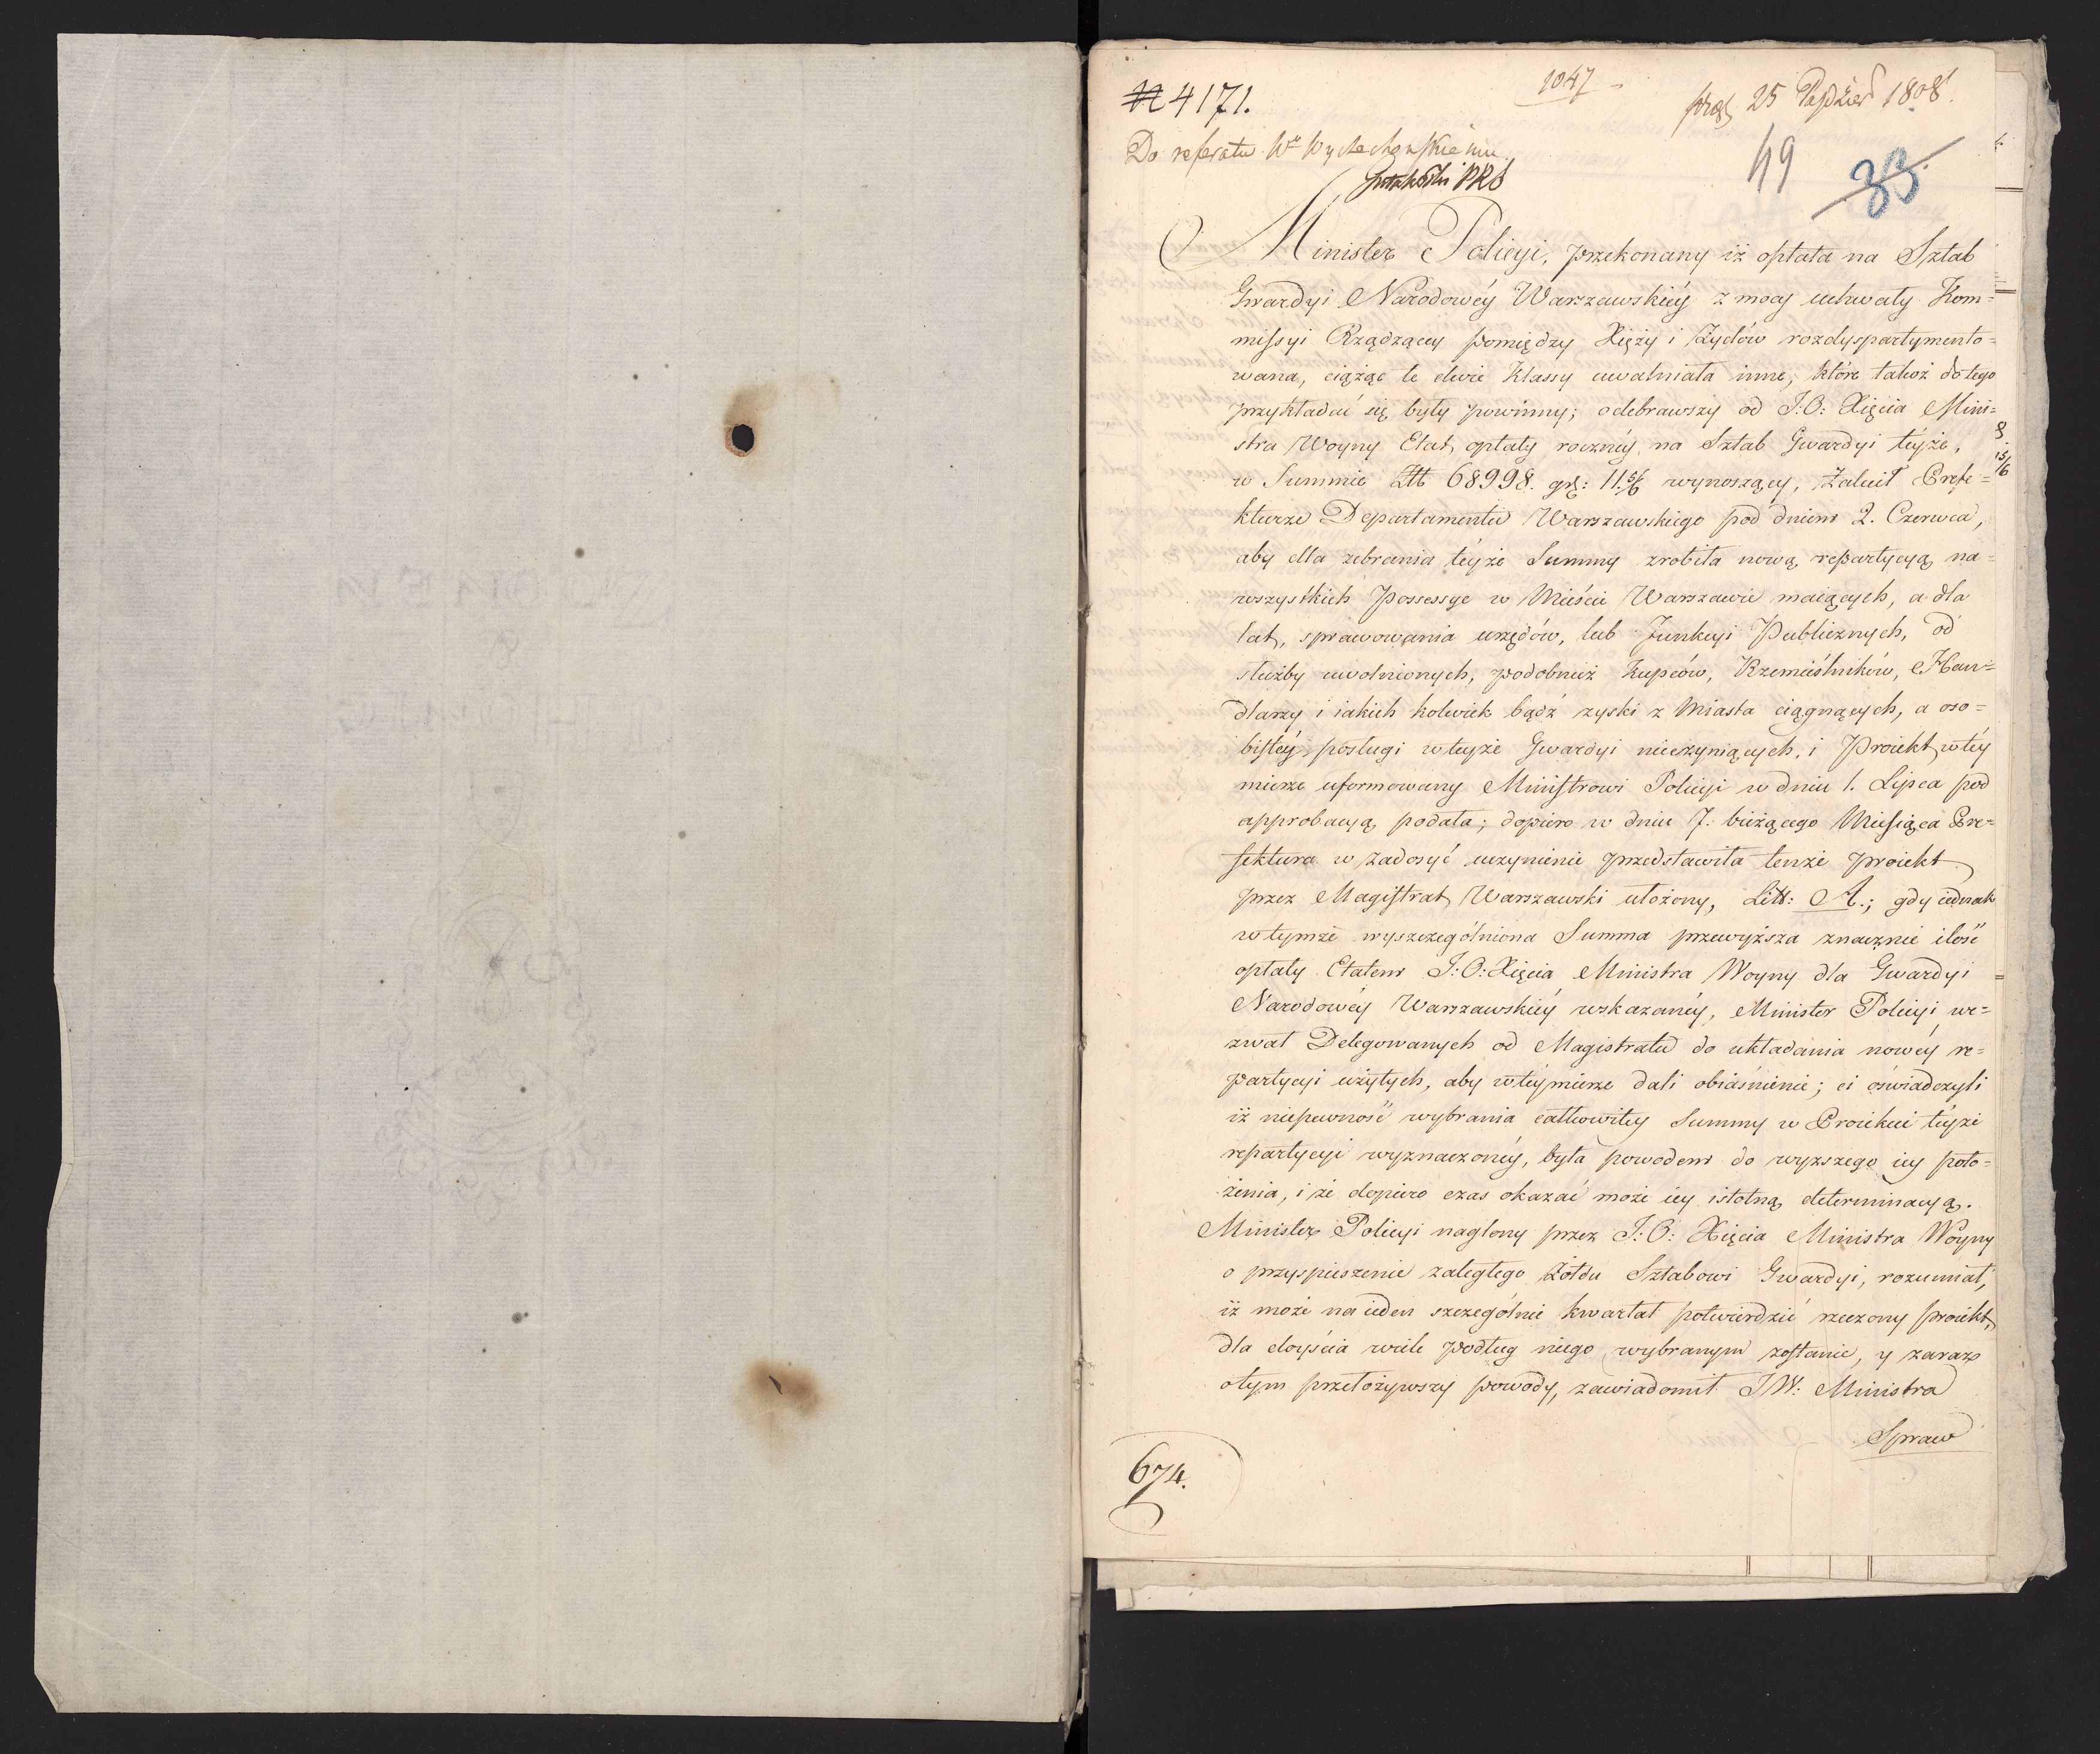 N 4171.
1047
25 Paździer 1808.
Do referatu
49
33.
Minister Policyi, przekonany iż opłata na Sztab
Gwardyi Narodowéy Warszawskiéy z mocy uchwały Kom=
missyi Rządzącey pomiędzy Xięży i Żydów rozdyspartymento=
wana, ciążąc te dwie Klassy uwalniała inne, które także do tego
przykładać się były powinny; odebrawszy od J:O: Xięcia Mini=
stra Woyny Etat, opłaty roczney, na Sztab Gwardyi teyże,
w Summie Złt 68998. gr: 11 5/6 wynoszącey, Zalecił Prefe=
kturze Departamentu Warszawskiego pod dniem 2. Czerwca,
aby dla zebrania téyże Summy zrobiła nową repartycyą na=
wszystkich Possessye w Mieście Warszawie maiących, a dla
lat, sprawowania urzędów, lub Funkcyi Publicznych, od
służby uwolnionych, podobnież Kupców, Rzemieślników, Han=
dlarzy i iakich kolwiek bądź zyski z Miasta ciągnących, a oso=
bistey posługi w teyże Gwardyi nieczyniących, i Proiekt w téy
mierze uformowany Ministrowi Policyi w dniu 1. Lipca pod
approbacyą podała; dopiero w dniu 7. bieżącego Miesiąca Pre=
fektura w zadosyć uczynienie przedstawiła tenże proiekt
przez Magistrat Warszawski ułożony, Litt: A.; gdy iednak
w tymże wyszczególniona Summa przewyższa znacznie ilość
opłaty Etatem J:O: Xięcia Ministra Woyny dla Gwardyi
Narodowéy Warszawskiéy wskazanéy, Minister Policyi we=
zwał Delegowanych od Magistratu do układania nowéy re=
partycyi użytych, aby w téy mierze dali obiaśnienie; ci oświadczyli
iż niepewność wybrania całkowitey Summy w Proiekcie téyże
repartycyi wyznaczonéy, była powodem do wyższego iey poło=
żenia, i że dopiero czas okazać może iey istotną determinacyą.
Minister Policyi naglony przez J:O: Xięcia Ministra Woyny
o przyspieszenie zaległego Żołdu Sztabowi Gwardyi, rozumiał,
iż może na ieden szczególnie kwartał potwierdzić rzeczony proiekt,
dla doyścia wiele podług niego wybranym zostanie, y zaraz
o tym przełożywszy powody, zawiadomił JW: Ministra
Spraw
674.